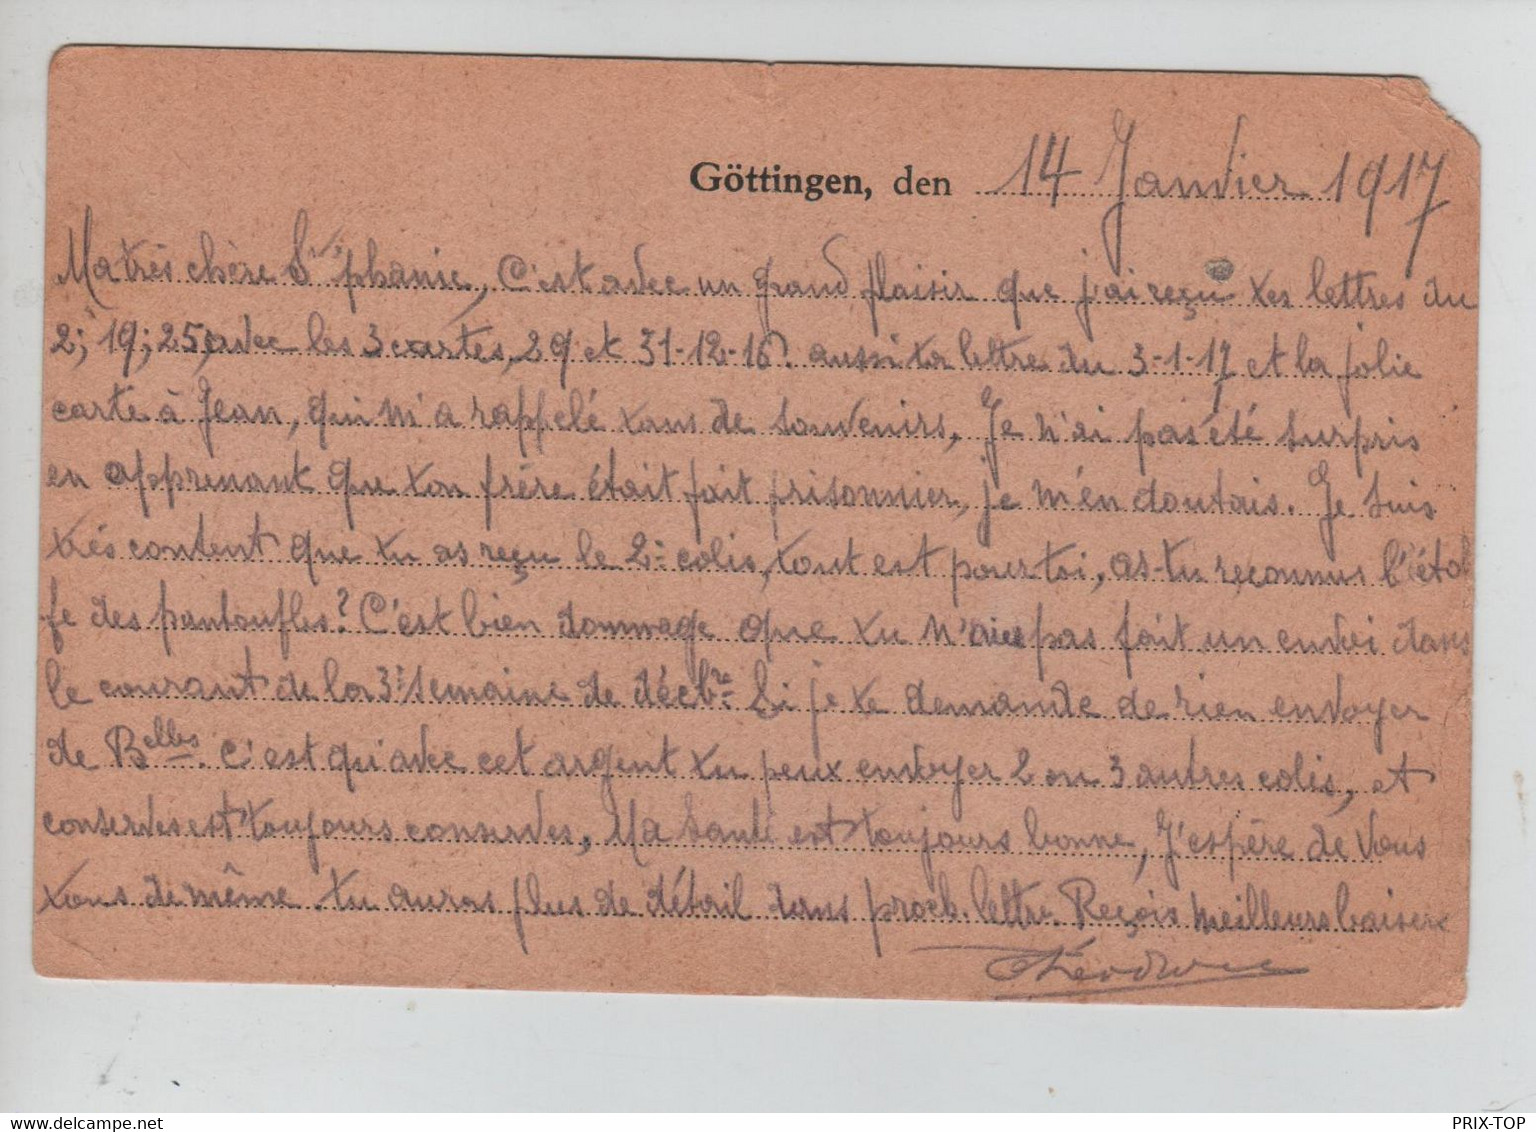 Göttingen, den 14 Janvier 1917
Ma très chère Stéphanie, C'est avec un grand plaisir que j'ai reçu tes lettres du
2; 19; 25, avec les 3 cartes, 29 et 31-12-16. aussi ta lettre du 3-1-17 et la jolie
carte à Jean, qui m'a rappelé tans de souvenirs. Je n'ai pas été surpris
en apprenant que ton frère était fait prisonnier, je m'en doutais. Je suis
très content que tu as reçu le 2e colis, tout est pour toi, as-tu reconnus l'étof
fe des pantoufles? C'est bien dommage que tu n'aies pas fait un envoi dans
le courant de la 3e semaine de décbre. Si je te demande de rien envoyer
de Belles. c'est qu'avec cet argent tu peux envoyer 2 ou 3 autres colis, et
conserves est toujours conserves, Ma santé est toujours bonne, J'espère de vous
tous de même. tu auras plus de détail dans proch. lettre Reçois meilleurs baisers
Théodore
PRIX-TOP